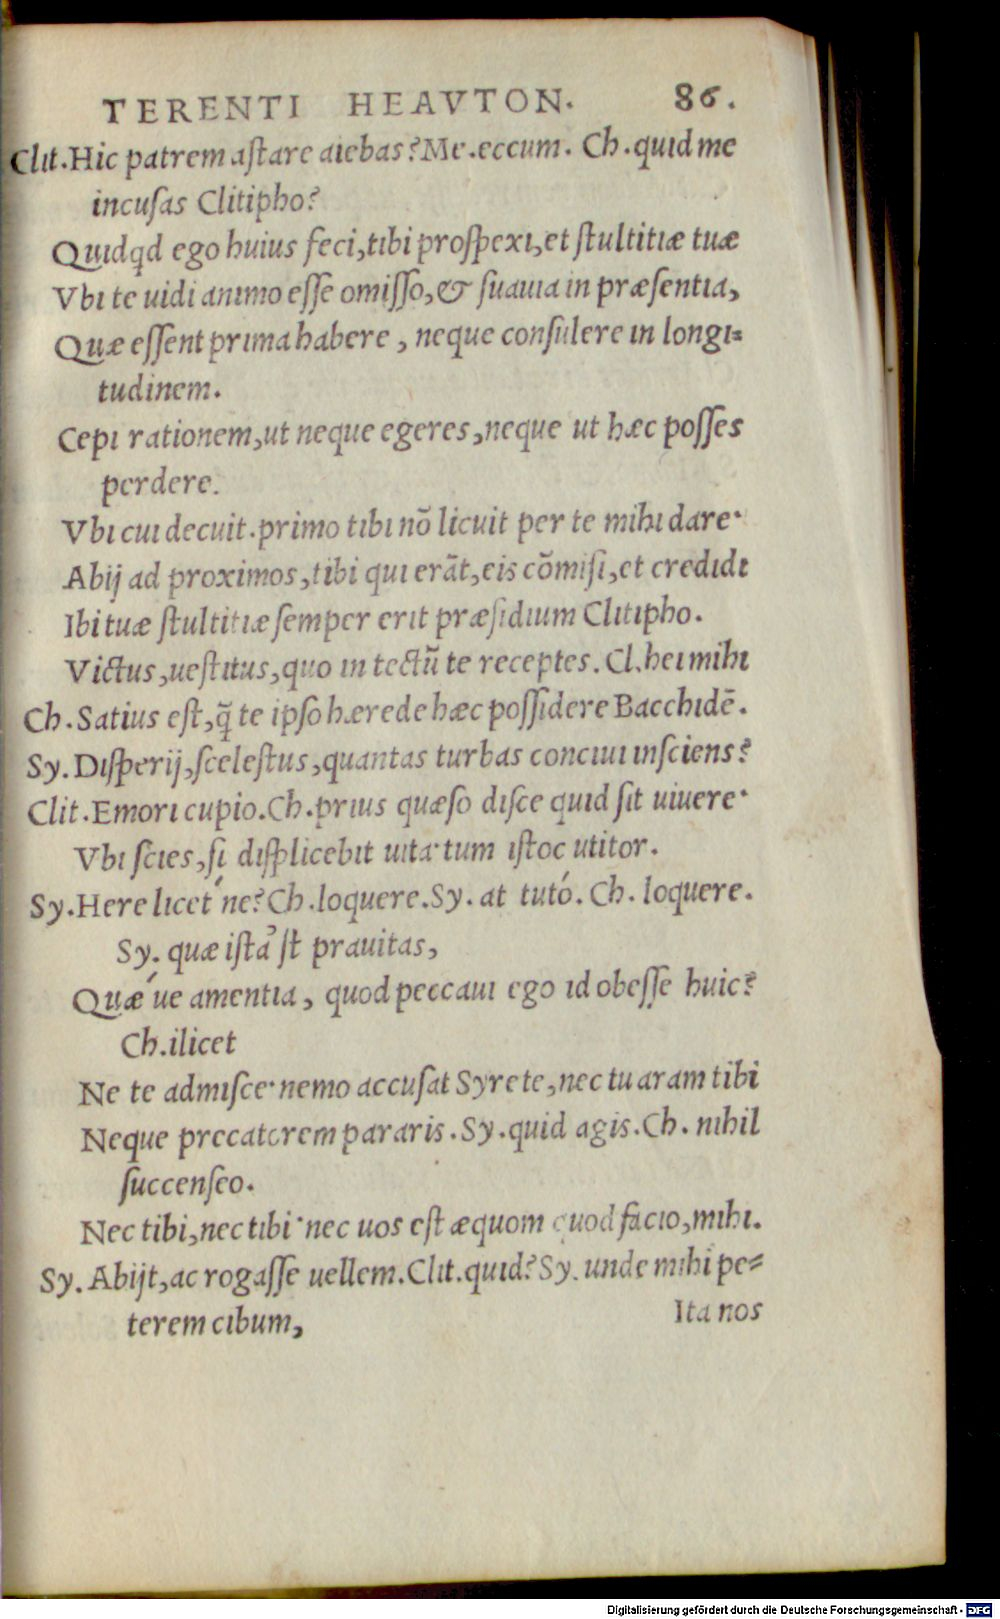 TERENTI HEAVTON. 86.
Clit.Hic patrem aſtare aiebas?Me.eccum. Ch.quid me
incuſas Clitipho?
Quidqd ego huius feci,tibi proſpexi,et ſtultitiæ tuæ
Vbi te uidi animo eſſe omiſſo,& ſuauia in præſentia,
Quæ eſſent prima habere , neque conſulere in longi=
tudinem.
Cepi rationem,ut neque egeres,neque ut hæc poſſes
perdere.
Vbi cui decuit.primo tibi nō licuit per te mihi dare·
Abij ad proximos,tibi qui erāt,eis cōmiſi,et credidi
Ibi tuæ ſtultitiæ ſemper erit præſidium Clitipho.
Victus,ueſtitus,quo in tectū te receptes.Cl.hei mihi
Ch.Satius eſt,q̄ te ipſo hærede hæc poſſidere Bacchidē.
Sy.Diſperij,ſceleſtus,quantas turbas conciui inſciens?
Clit.Emori cupio.Ch.prius quæſo diſce quid ſit uiuere·
Vbi ſcies,ſi diſplicebit uita·tum iſtoc utitor.
Sy.Here licet´ne?Ch.loquere.Sy.at tutó. Ch. loquere.
Sy. quæ iſta᾽ſt prauitas,
Quæ´ue amentia, quod peccaui ego id obeſſe huic?
Ch.ilicet
Ne te admiſce·nemo accuſat Syre te,nec tu aram tibi
Neque precatorem pararis.Sy.quid agis.Ch. nihil
ſuccenſeo.
Nec tibi,nec tibi·nec uos eſt æquom quod facio,mihi.
Sy. Abijt,ac rogaſſe uellem.Clit.quid?Sy.unde mihi pe=
terem cibum, Ita nos
Digitalisierung gefördert durch die Deutsche Forschungsgemeinschaft - DFG